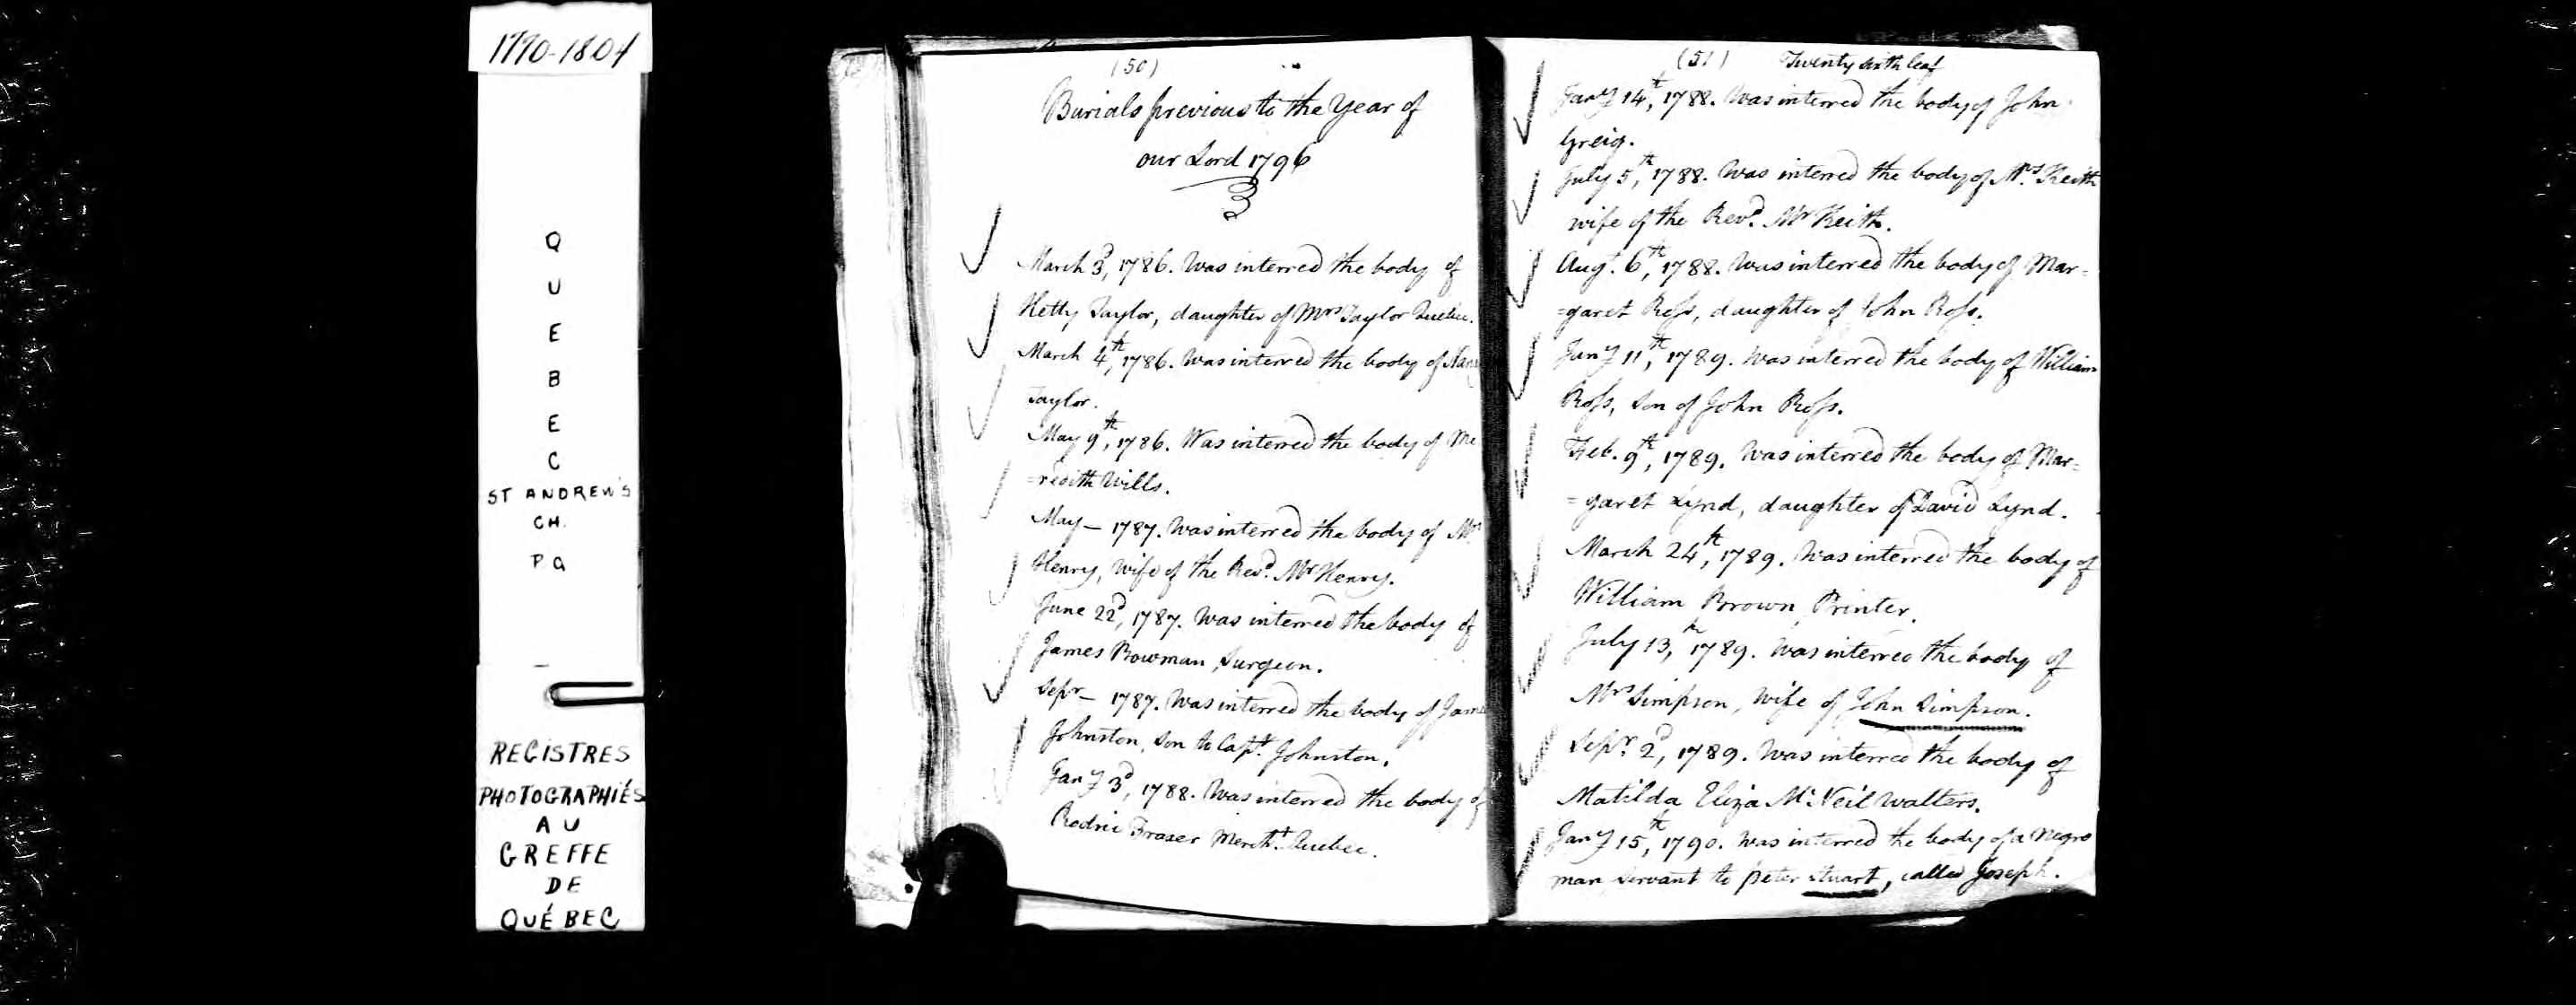 1790-1804
Q
U
E
B
E
C
ST ANDREW'S
CH.
P Q
REGISTRES
PHOTOGRAPHIÉS
AU
GREFFE
DE
QUÉBEC
(50)
Burials previous to the Year of
our Lord 1796
March 3d, 1786. Was interred the body of
Hetty Taylor, daughter of Mrs Taylor Quebec.
March 4th, 1786. Was interred the body of
Taylor.
May 9th, 1786. Was interred the body of Me
=redith Wills.
May — 1787. Was interred the body of Mrs
Henry, Wife of the Revd. Mr Henry.
June 22d, 1787. Was interred the body of
James Bowman, Surgeon.
Sepr — 1787. Was interred the body of James
Johnston, son to Capt. Johnston.
Jany 3d, 1788. Was interred the body of
Fraser Mercht. Quebec.
(51) Twenty sixth leaf
Jany 14th, 1788. Was interred the body of John
Greig.
July 5th, 1788. Was interred the body of Mrs. Keith
wife of the Revd. Mr Keith.
Augt. 6th, 1788. Was interred the body of Mar=
=garet Ross, daughter of John Ross.
Jany 11th, 1789. Was interred the body of William
Ross, son of John Ross.
Feb. 9th, 1789. Was interred the body of Mar=
=garet Lynd, daughter of David Lynd.
March 24th, 1789. Was interred the body of
William Brown, Printer.
July 13th, 1789. Was interred the body of
Mrs Simpson, Wife of John Simpson.
Sepr. 2d, 1789. Was interred the body of
Matilda Eliza McNeil Walters.
Jany 15th, 1790. Was interred the body of a Negro
man servant to Peter Stuart, called Joseph.